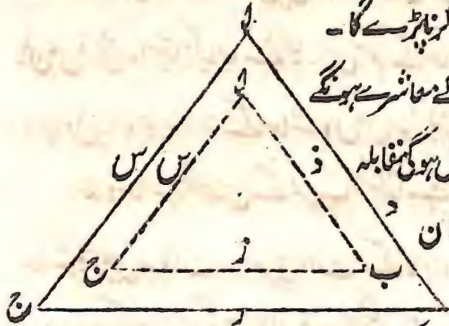 کرنا پڑے گا۔
لے معاشرے ہونگے
ں ہوگی مقابلہ
ن
س س ذ د
ج ز ب
ج